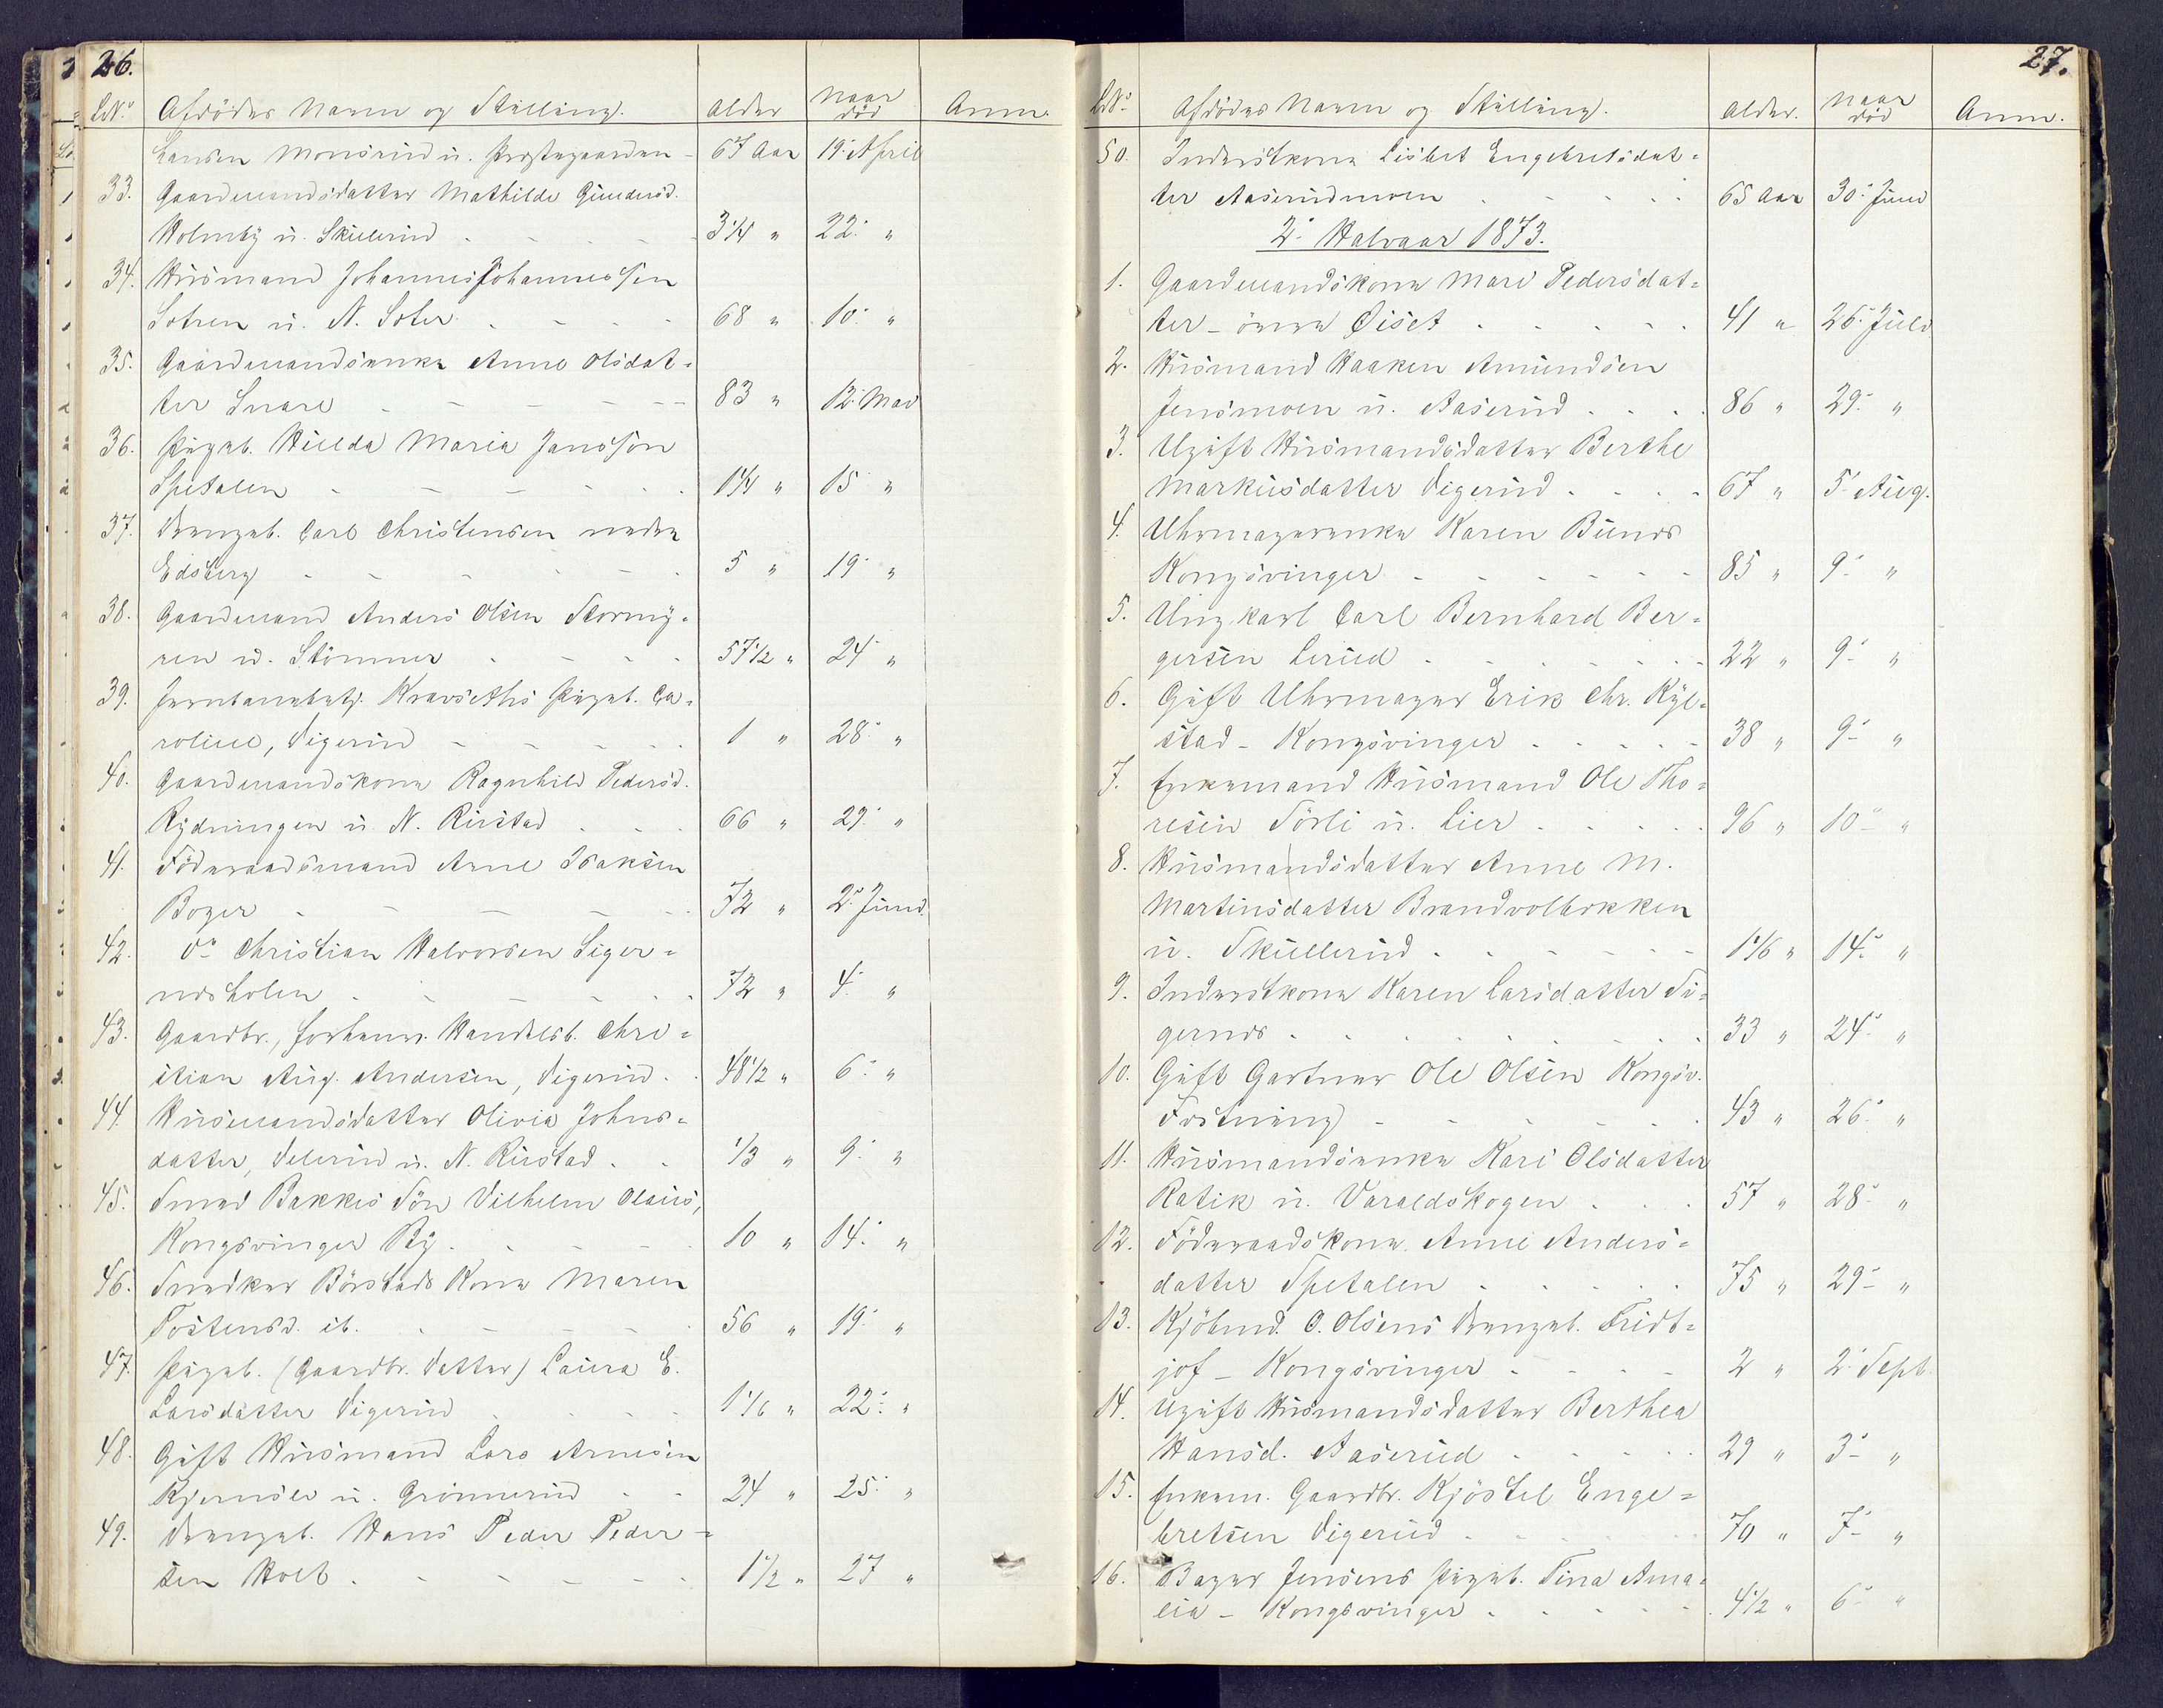 26.
LNo Afdødes Navn og Stilling. Alder Naar død Anm.
Larsen Monsrud u. Prestegaarden - 67 Aar 19. April
33. Gaardmandsdatter Mathilde Gundersd.
Holmby u. Skullerud 3 1/4 " 22. "
34. Husmand Johannes Johannessen
Sotren u. N. Soter 68 " 10. "
35. Gaardmandsenke Anne Olsdat=
ter Snare 83 " 12. Mai
36. Pigeb. Hilda Maria Jansson
Spetalen 1 1/4 " 15 "
37. Drengeb. Carl Christensen nedre
Edsberg 5 " 19. "
38. Gaardmand Anders Olsen Stormy=
ren u. Strømner 57 1/2 " 24. "
39. Jernbanebetj. Kravseths Pigeb. Ca=
roline, Vigerud 1 " 28. "
40. Gaardmandskone Ragnhild Pedersd.
Rydningen u. N. Rustad 66 " 29. "
41. Føderaadsmand Arne Isaksen
Boger 72 " 2. Juni
42. Do Christian Halvorsen Siger=
nesholen 72 " 4. "
43. Gaardbr., forhenv. Handelsb. Chri=
stian Aug. Andersen, Vigerud 48 1/2 " 6. "
44. Husmandsdatter Olivia Johns=
datter, Velerud u. N. Rustad 1/3 " 9. "
45. Smed Bakkes Søn Vilhelm Olaus,
Kongsvinger By 10 " 14. "
46. Snedker Børstads Kone Maren
Tostensd. ib. 56 " 19. "
47. Pigeb. (Gaardbr. Datter) Laura E.
Larsdatter Vigerud 1 1/6 " 22. "
48. Gift Husmand Lars Arnesen
Kjernsli u. Grønnerud 24 " 25. "
49. Drengeb. Hans Peder Peder=
sen Holt 1 1/2 " 27 "
27.
LNo Afdødes Navn og Stilling. Alder. Naar død Anm.
50. Inderstkone Lisbet Engebretsdat=
ter Aaserudmoen 65 Aar 30. Juni
2. Halvaar 1873.
1. Gaardmandskone Mari Pedersdat=
ter - øvre Øiset 41 " 26. Juli
2. Husmand Haaken Amundsen
Jensmoen u. Aaserud 86 " 29. "
3. Ugift Husmandsdatter Berthe
Markusdatter Vigerud 67 " 5. Aug.
4. Uhrmagerenke Karen Bunes
Kongsvinger 85 " 9. "
5. Ungkarl Carl Bernhard Ber=
gersen Lerud 22 " 9. "
6. Gift Uhrmager Erik Chr. Kyl=
stad - Kongsvinger 38 " 9. "
7. Enkemand Husmand Ole Tho=
resen Sørli u. Lier 96 " 10. "
8. Husmandsdatter Anne M.
Martinsdatter Brandvolbakken
u. Skullerud 1 1/6 " 14. "
9. Inderstkone Karen Larsdatter Si=
gernes 33 " 24. "
10. Gift Gartner Ole Olsen Kongsv.
Fæstning 43 " 26. "
11. Husmandsenke Kari Olsdatter
Ratik u. Varaldskogen 57 " 28. "
12. Føderaadskone Anne Anders=
datter Spetalen 75 " 29. "
13. Kjøbmd. O. Olsens Drengeb. Fridt=
jof - Kongsvinger 2 " 2. Sept.
14. Ugift Husmandsdatter Berthea
Hansd. Aaserud 29 " 3. "
15. Enkem. Gaardbr. Kjøstel Enge=
bretsen Vigerud 70 " 7. "
16. Bager Jensens Pigeb. Tina Ama=
lia - Kongsvinger 4 1/2 " 6. "